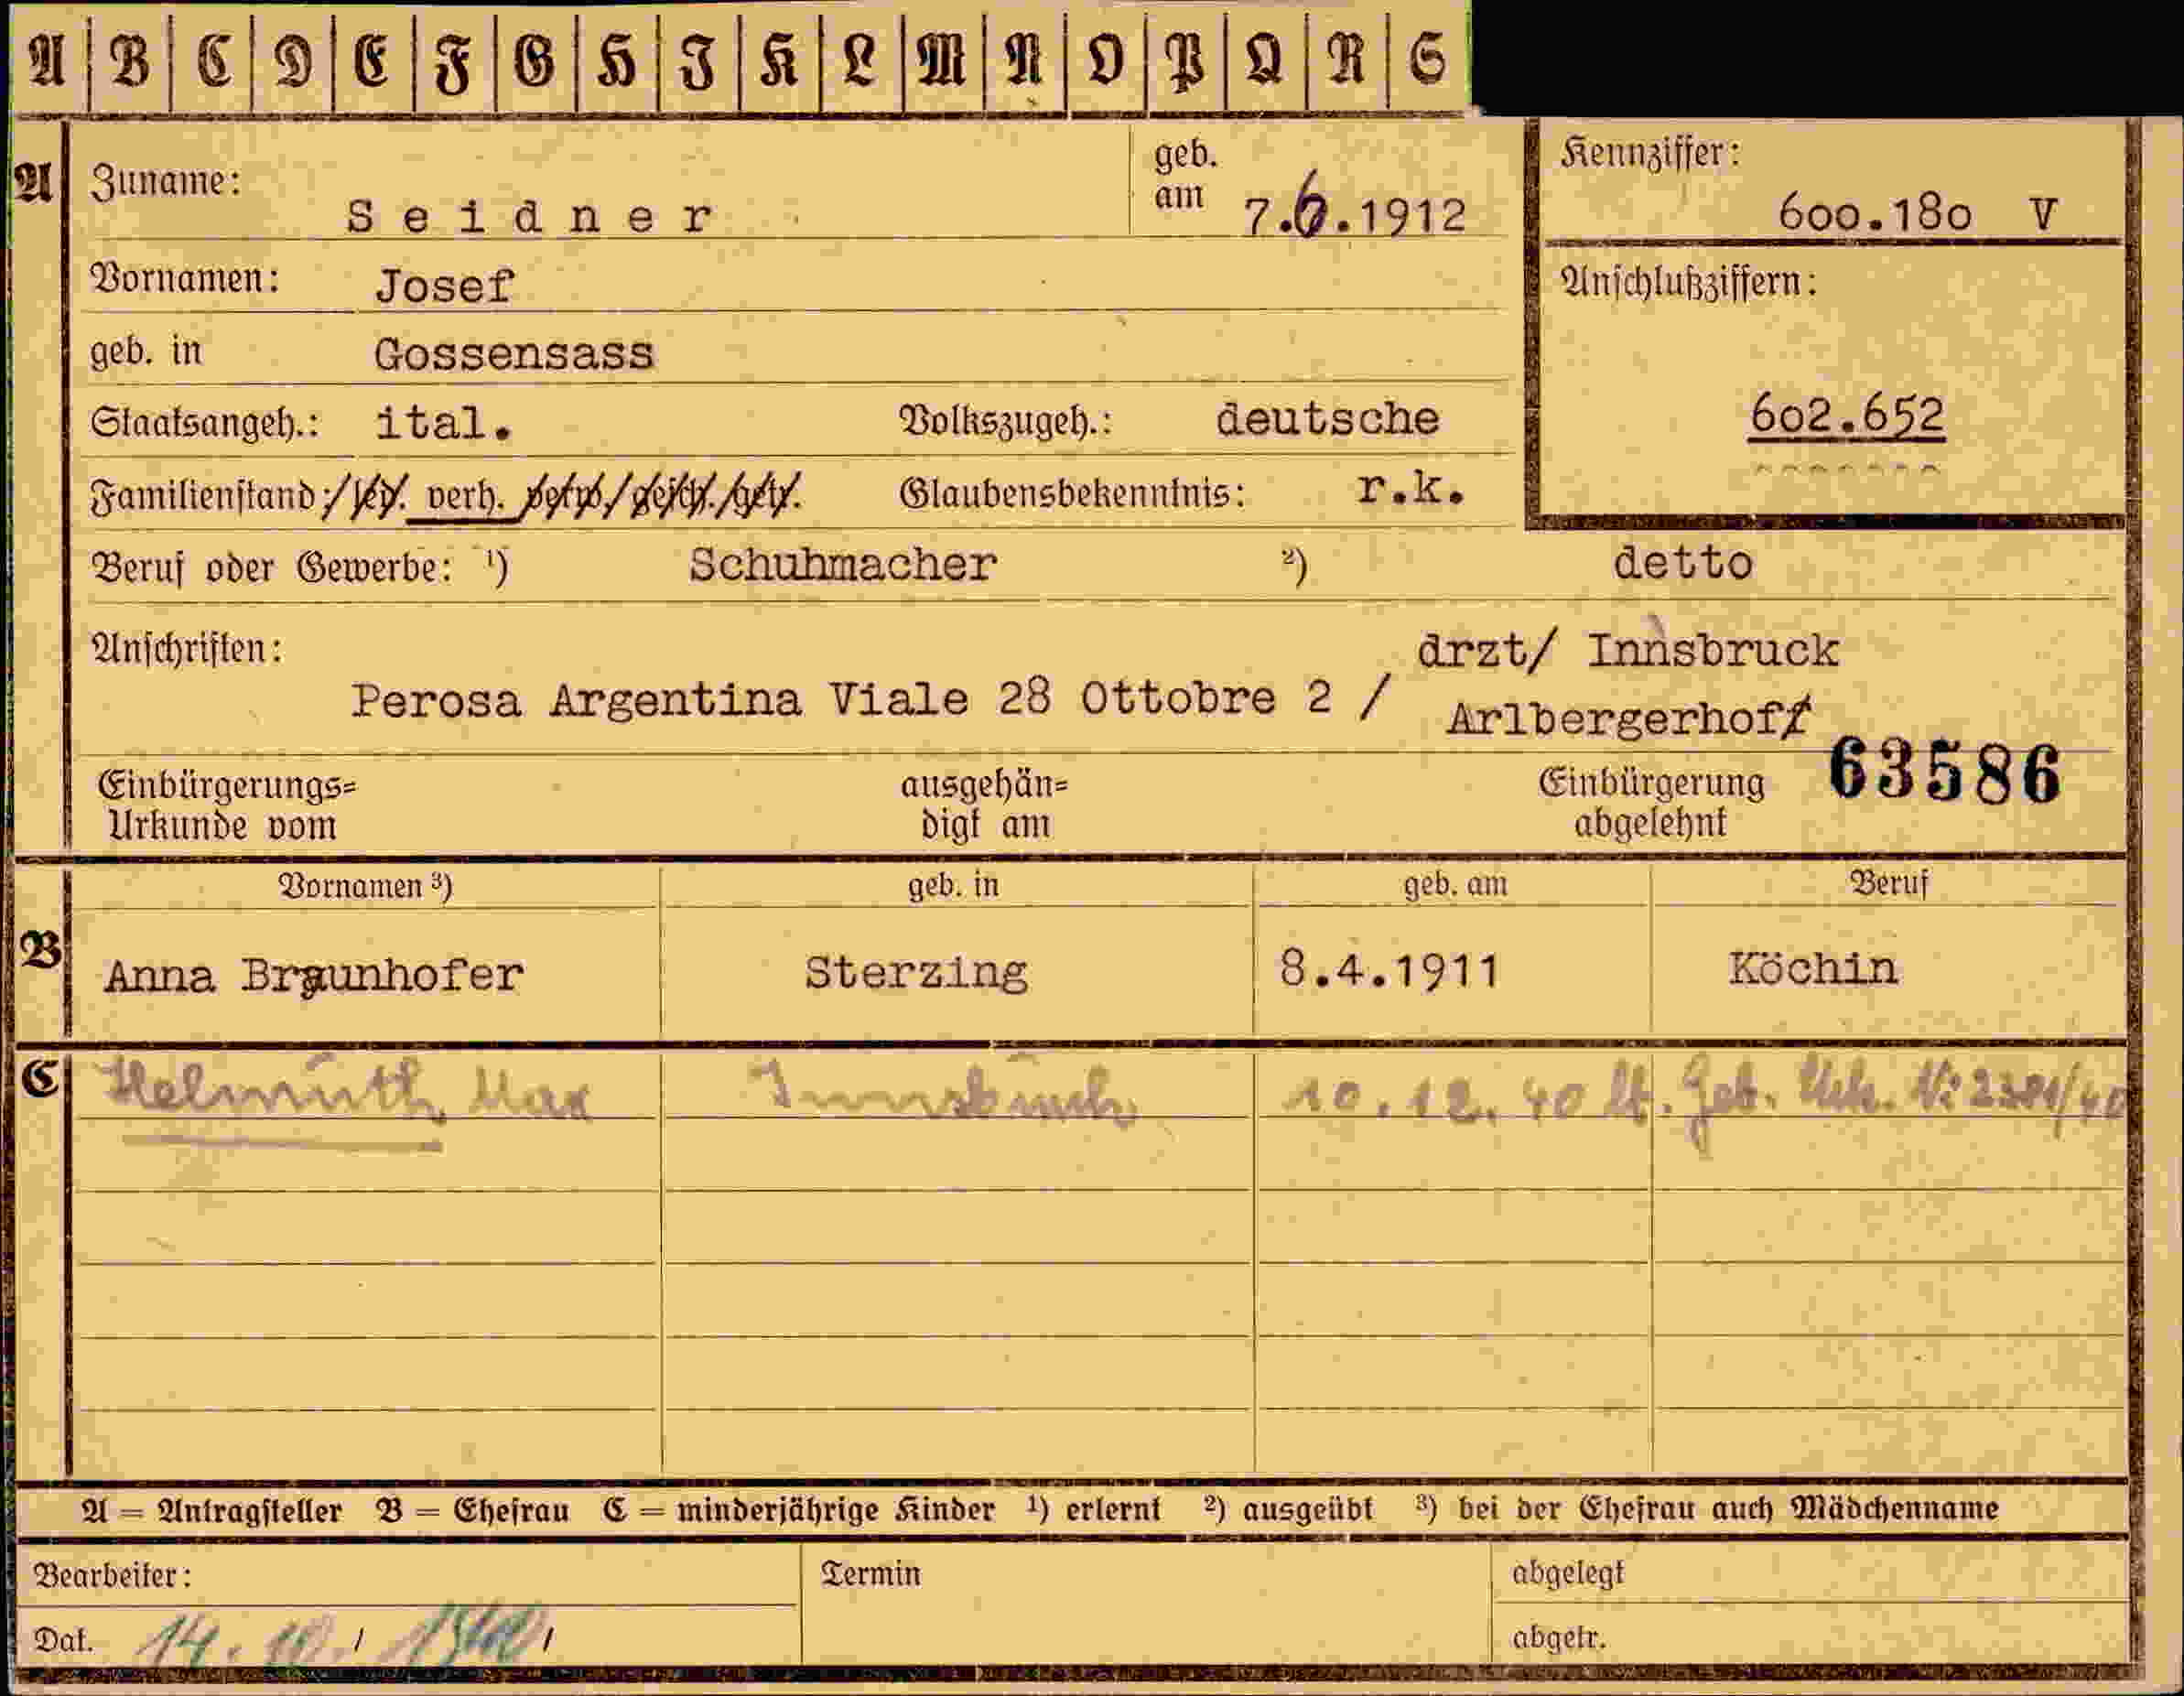 A B C D E F G H I K L M N O P Q R S
A
Zuname: Seidner
geb. am 7.6.1912
Kennziffer:
600.180 V
Vornamen: Josef
Anschlußziffern:
geb. in Gossensass
602.652
Staatsangeh.: ital. Volkszugeh.: deutsche
Familienstand: led. verh. verw. gesch. getr. Glaubensbekenntnis: r.k.
Beruf oder Gewerbe: ¹) Schuhmacher ²) detto
Anschriften:
drzt/ Innsbruck
Perosa Argentina Viale 28 Ottobre 2 / Arlbergerhof
Einbürgerungs=
Urkunde vom
ausgehän=
digt am
Einbürgerung
abgelehnt
63586
Vornamen ³) geb. in geb. am Beruf
B
Anna Braunhofer Sterzing 8.4.1911 Köchin
C
Helmuth Max Innsbruck 10.12.40 lt. Geb. Urk. Nr.
A = Antragsteller B = Ehefrau C = minderjährige Kinder ¹) erlernt ²) ausgeübt ³) bei der Ehefrau auch Mädchenname
Bearbeiter: Termin abgelegt
Dat. 14.10. 1940 abgetr.